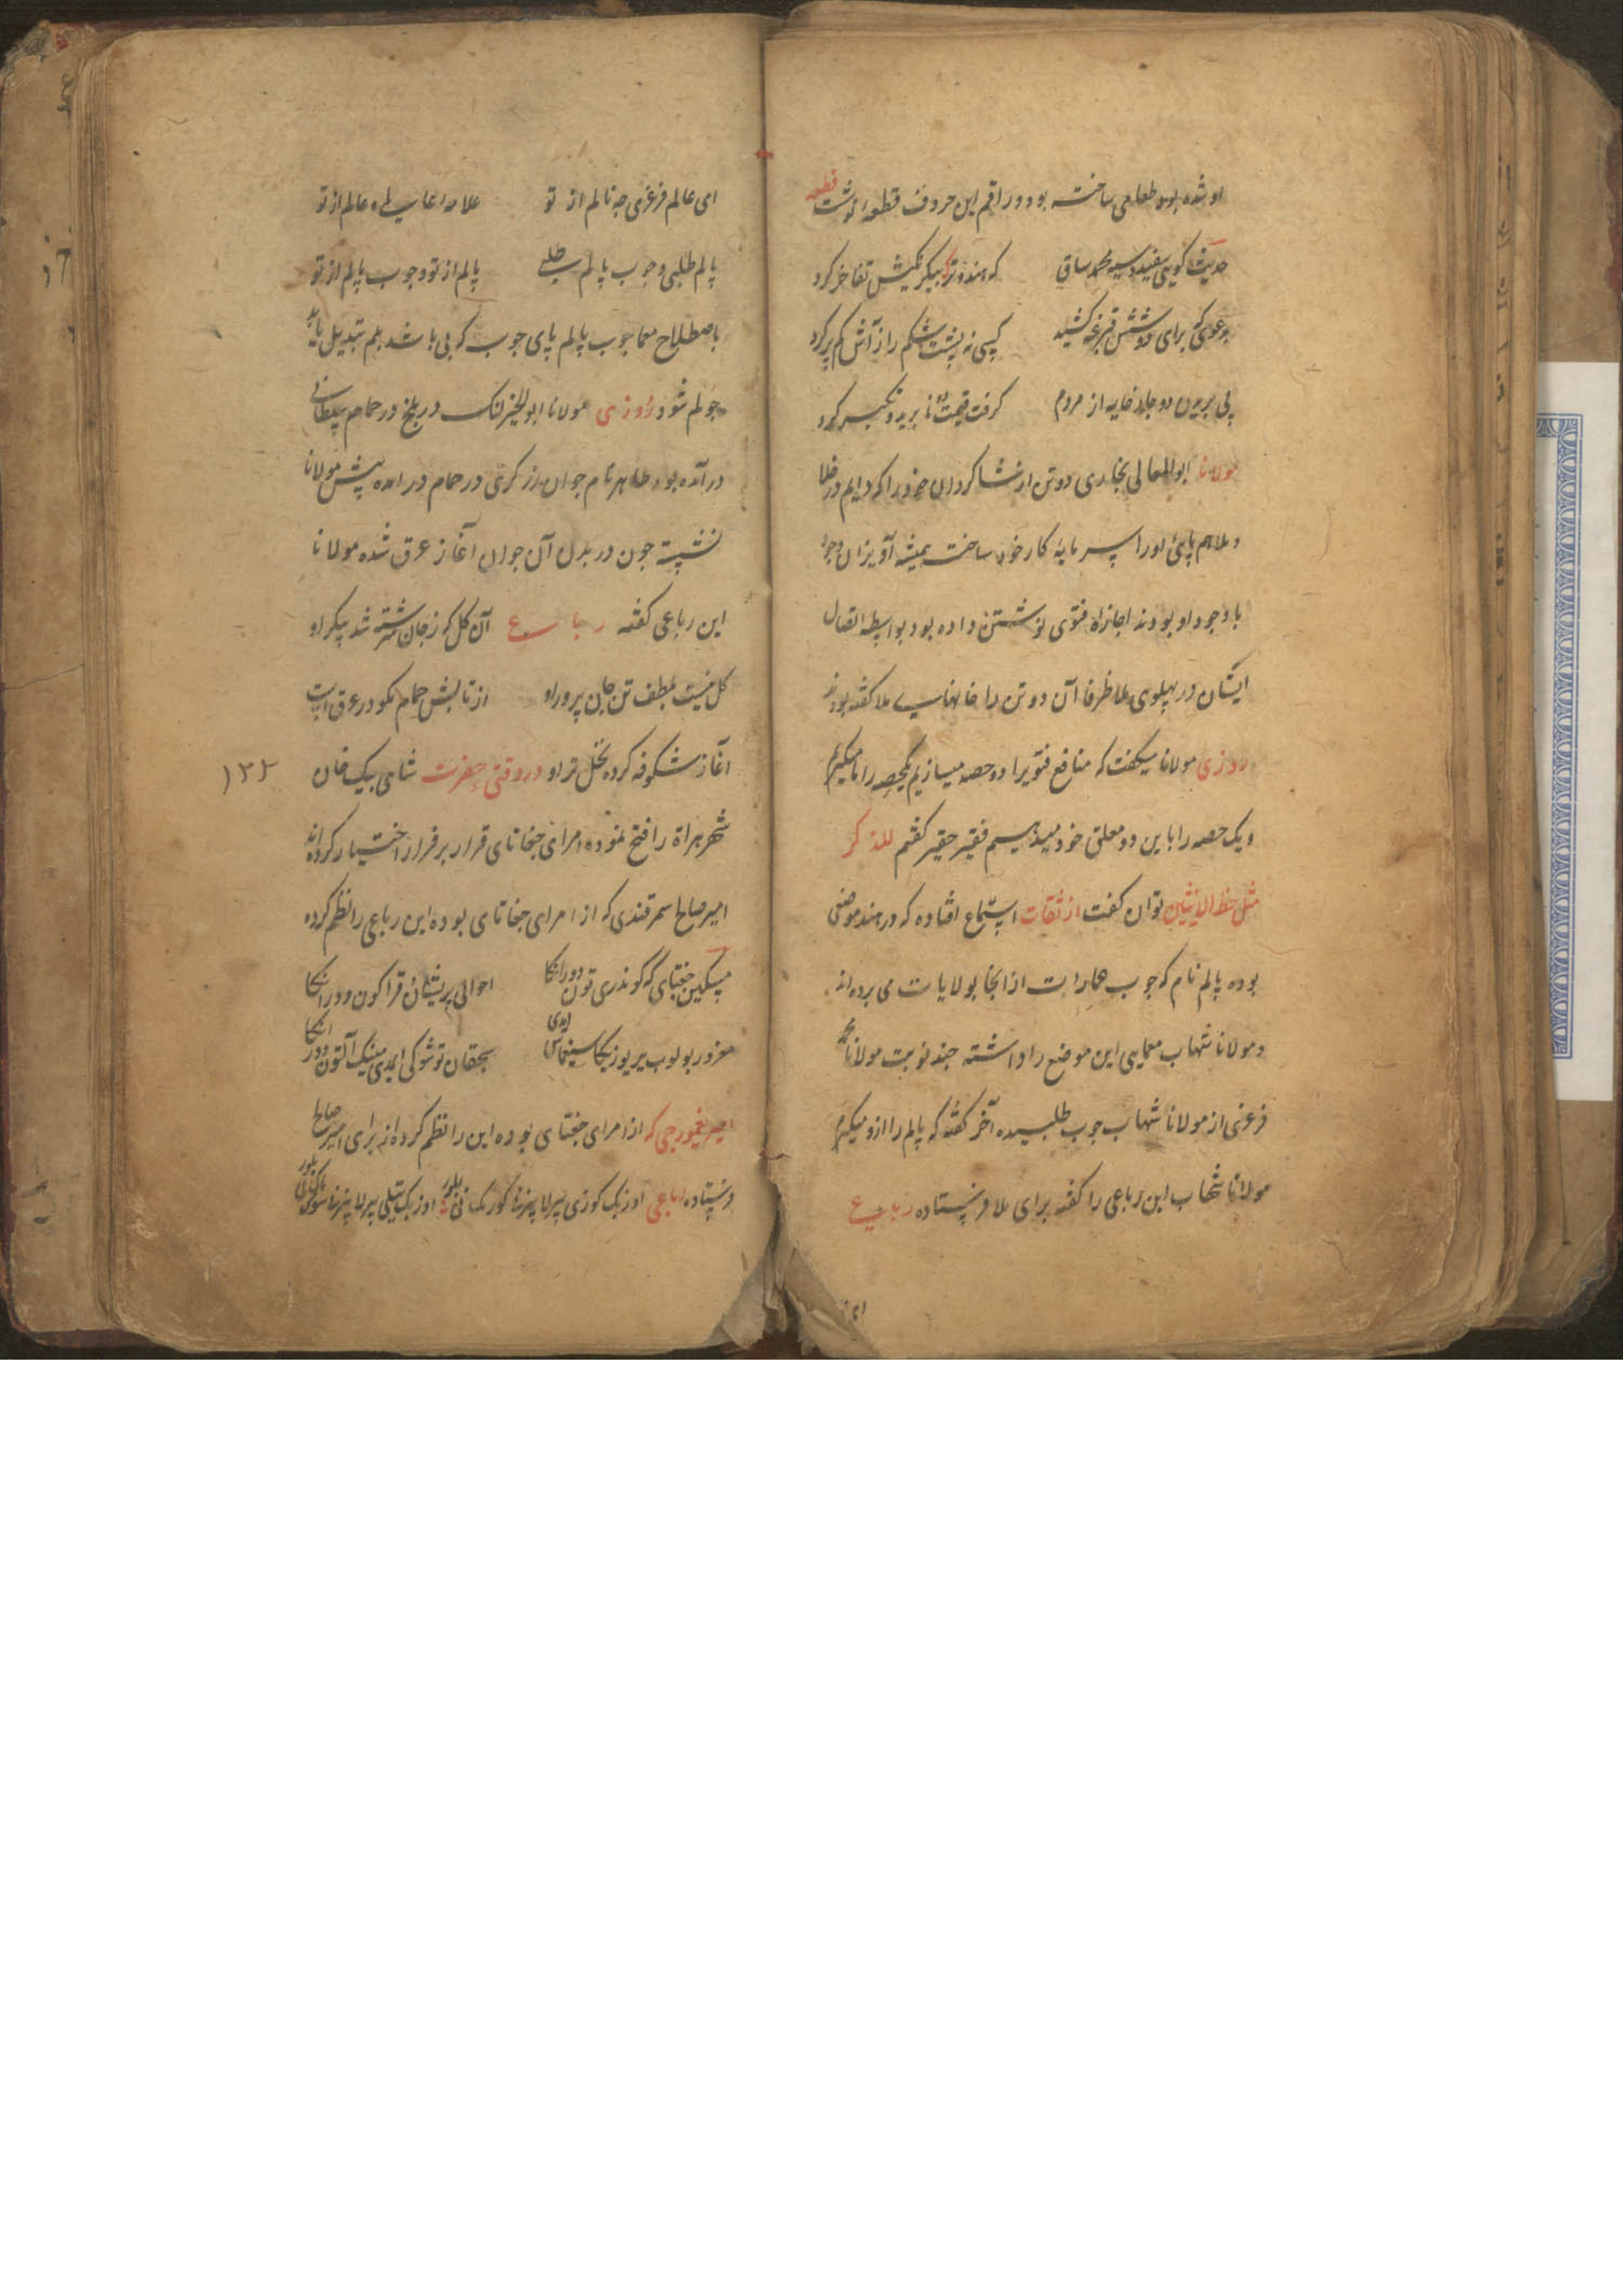 او شده بود طعامی ساخته بود و راقم این حروف قطعه نوشت قطعه
حدیث کویی سفید و سیه محمد ساقی که هند و ترک بیکرنکیش تفاخر کرد
کسی نه پشت شکم را ز آش کم پر کرد
پی بریدن دو جلد خایه از مردم کرفت قیمت نابریده کرد
مولانا ابوالمعالی بخاری دو تن از شاکردان خود را که دایم در خلا
و ملا هم پای اورا سرمایهٔ کار خود ساخته همیشه آویزان وجود
با وجود او بودند اجازهٔ فتوی نوشتن داده بود بواسطه اتصال
ایشان در پهلوی ملا ظرفا آن دو تن را خایهای ملا کفته بودند
روزی مولانا میکفت که منافع فتویرا دو حصه میسازیم یکحصه را ما میکیریم
و یک حصه را باین دو معلق خود میدهیم فقیر حقیر کفتم للذکر
مثل حظ الانثیین توان کفت از ثقات استماع افتاده که در هند موضعی
بوده پالم نام که چوب عمارات از انجا بولایات می برده اند
و مولانا شهاب معمایی این موضع را داشته چند نوبت مولانا محمد
فرغری از مولانا شهاب چوب طلبیده آخر کفته که پالم را ازو میکیرم
مولانا شهاب این رباعی را کفته برای ملا فرستاده رباعی
ای عالم فرغری چه نالم از تو علامه عالم از تو
پالم طلبی و چوب پالم طلبی پالم از تو و چوب پالم از تو
باصطلاح معما چوب پالم پای چوب که بی باشد بلم تبدیل یابد
چولم شود روزی مولانا ابوالخیر لنک در بلخ در حمام سلطانی
درآمده بود طاهر نام جوان زرکری در حمام در امده پیش مولانا
نشسته چون در بدن آن جوان آغاز عرق شده مولانا
این رباعی کفته رباعی آن کل که ز جان سرشته شد پیکر او
کل نیست بلطف تن جان پرور او از تابش حمام مکو در عرق است
آغاز شکوفه کرده نخل تر او در وقتی حضرت شاهی بیک خان
۱۲۲
شهر هراة را فتح نموده امرای جغاتای قرار بر فرار اختیار کرده اند
امیر صالح سمرقندی که از امرای جغاتای بوده این رباعی را نظم کرده
مسکین جغتای که کوندری تون دور انکا احوالی پریشان قرا کون دور انکا
مغرور بولوب بیر یوزیکا ایدی سیچقان توشوکی ایمدی مینک آلتون دور انکا
امیر یغورچی که از امرای جغتای بوده این را نظم کرده از برای امیر صالح
فرستاده رباعی